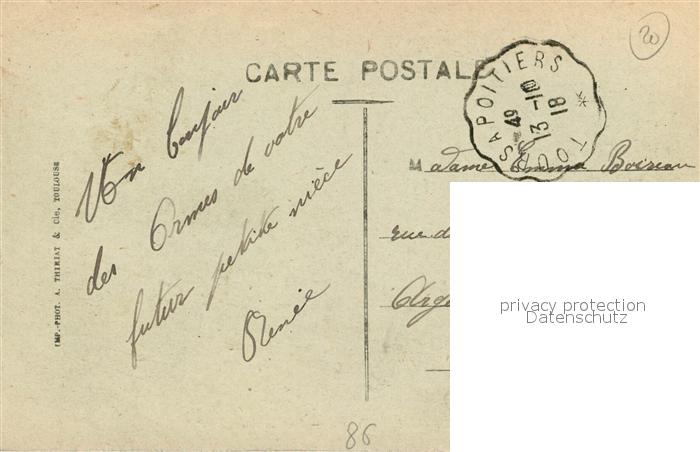 20
CARTE POSTALE
TOURS A POITIERS
49
13-10
18
Un bonjour
des Ormes de votre
futur petite nièce
Renée
Madame Emma Boireau
rue d
Arge
IMP.-PHOT. A. THIRIAT & Cie, TOULOUSE
86
privacy protection
Datenschutz